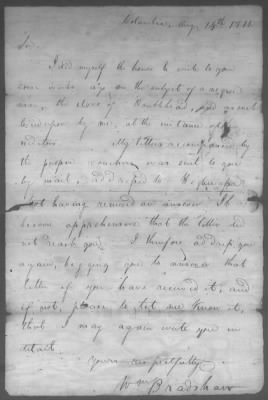 Columbia, Aug. 14th 1841
Sir,
I did myself the honor to write to you
some weeks ago on the subject of a negro
man, the slave of
levied upon by me, at the instance of
creditors My letter accompanied by
the proper vouchers was sent to you
by mail, addressed to
not having received an answer I have
become apprehensive that the letter did
not reach you. I therefore address you
again, begging you to answer that
letter if you have received it, and
if not, please to let me know it,
that I may again write you in
detail.
Yours respectfully
Wm Bradshaw